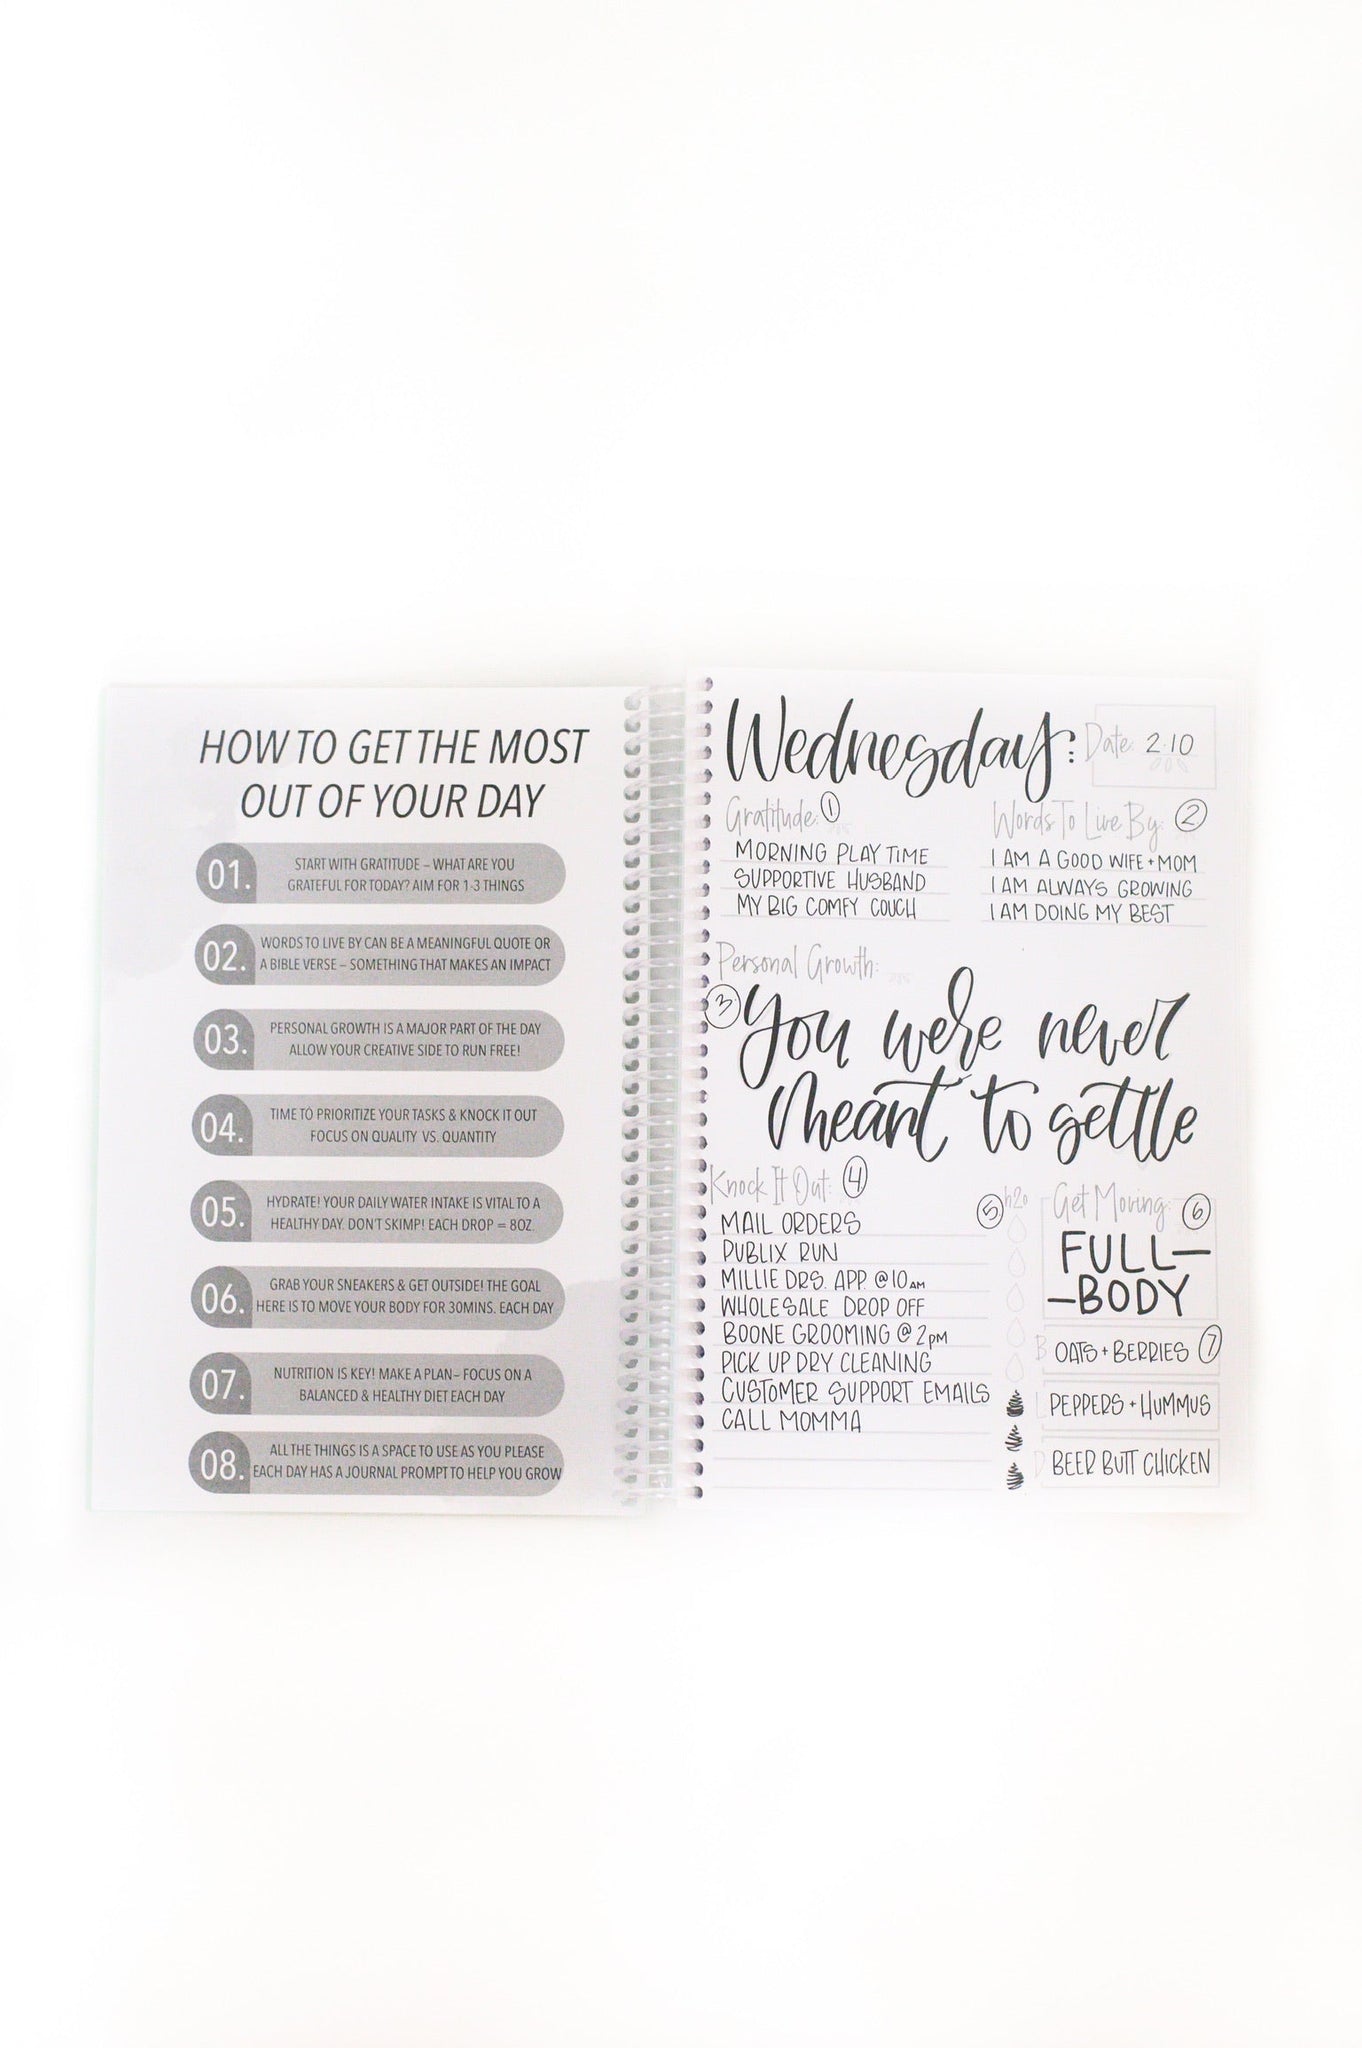 HOW TO GET THE MOST
OUT OF YOUR DAY
01.
START WITH GRATITUDE – WHAT ARE YOU
GRATEFUL FOR TODAY? AIM FOR 1-3 THINGS
02.
WORDS TO LIVE BY CAN BE A MEANINGFUL QUOTE OR
A BIBLE VERSE – SOMETHING THAT MAKES AN IMPACT
03.
PERSONAL GROWTH IS A MAJOR PART OF THE DAY
ALLOW YOUR CREATIVE SIDE TO RUN FREE!
04.
TIME TO PRIORITIZE YOUR TASKS & KNOCK IT OUT
FOCUS ON QUALITY VS. QUANTITY
05.
HYDRATE! YOUR DAILY WATER INTAKE IS VITAL TO A
HEALTHY DAY. DON'T SKIMP! EACH DROP = 8OZ.
06.
GRAB YOUR SNEAKERS & GET OUTSIDE! THE GOAL
HERE IS TO MOVE YOUR BODY FOR 30MINS. EACH DAY
07.
NUTRITION IS KEY! MAKE A PLAN– FOCUS ON A
BALANCED & HEALTHY DIET EACH DAY
08.
ALL THE THINGS IS A SPACE TO USE AS YOU PLEASE
EACH DAY HAS A JOURNAL PROMPT TO HELP YOU GROW
Wednesday:
Date: 2.10
Gratitude: 1
MORNING PLAY TIME
SUPPORTIVE HUSBAND
MY BIG COMFY COUCH
Words To Live By: 2
I AM A GOOD WIFE + MOM
I AM ALWAYS GROWING
I AM DOING MY BEST
Personal Growth:
3 You were never
meant to settle
Knock It Out: 4
MAIL ORDERS
PUBLIX RUN
MILLIE DRS. APP. @ 10 AM
WHOLESALE DROP OFF
BOONE GROOMING @ 2PM
PICK UP DRY CLEANING
CUSTOMER SUPPORT EMAILS
CALL MOMMA
5 h2o
Get Moving: 6
FULL—
—BODY
B OATS + BERRIES 7
L PEPPERS + HUMMUS
D BEER BUTT CHICKEN